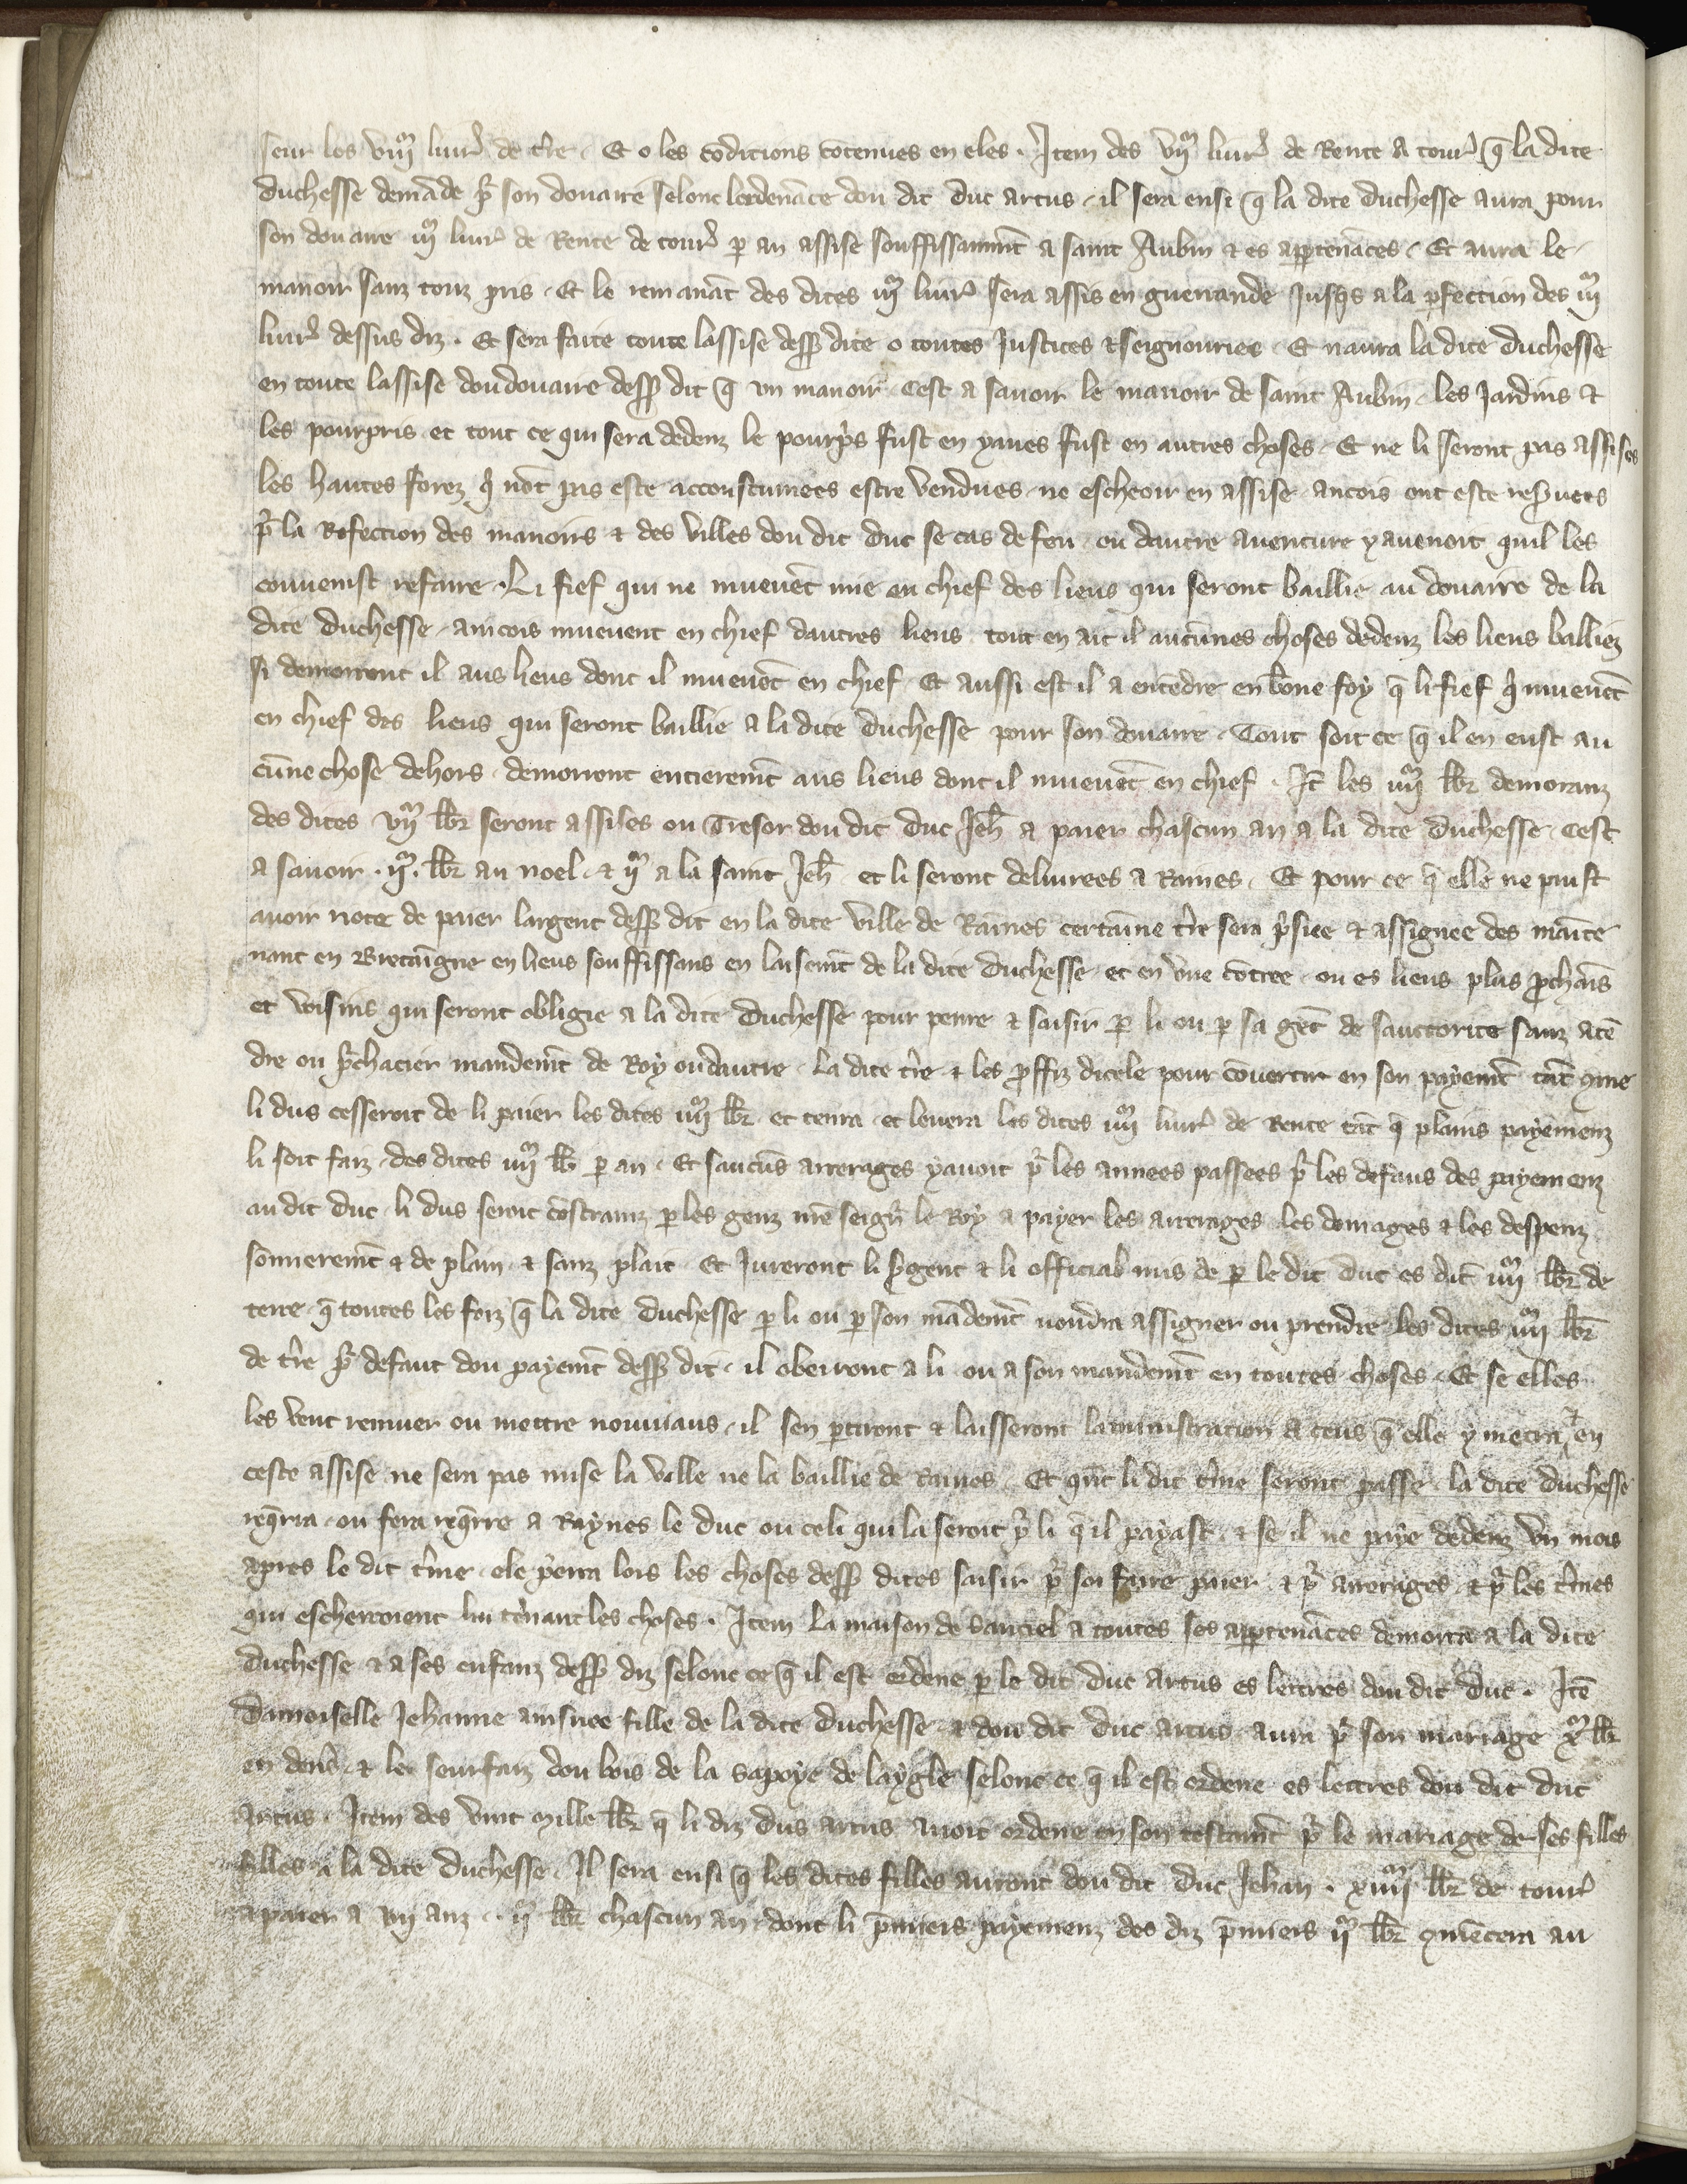 seur les viijᵐ livrˢ de t͛re. Et o les cōdicions cōtenues en eles. Item des vijᵐ livrˢ de Rente a tourˢ q̄ la dite
duchesse demāde pͬ son douaire selonc lordenāce dou dit duc artus, il sera ensi q̄ la dite duchesse aura pour
son douaire iijᵐ livrˢ de Rente de tourˢ ꝑ an assise souffissanmt̄ a saint Aubin ⁊ es aꝑtenāces. Et aura le
manoir sanz touz pris. Et le remanāt des dites iijᵐ livrˢ sera assis en guerrande Jusqs a la ꝑfection des iijᵐ
livrˢ dessus diz. Et sera faite toute lassise desꝰ dite o toutes Justices ⁊ seignouries. Et naura la dite duchesse
en toute lassise dou douaire desꝰ dit q̄ un manoir. Cest a savoir le manoir de saint Aubin. les Jardins et
les pourpris et tout ce qui sera dedenz le pourpͥs fust en yaues fust en autres choses. Et ne li seront pas assises
les hautes forez qͥ nōt pas este accoustumees estre vendues ne escheoir en assise ancois ont este res͛vees
pͬ la Refection des manoirs ⁊ des villes dou dit duc se cas de feu ou dautre aventure y avenoit quil les
convenist refaire. Li fief qui ne muevēt mie en chief des lieus qui seront baillie au douaire de la
dite duchesse, aincois muevent en chief dautres lieus tout en ait il aucūnes choses dedenz les lieus balliez
si demorront il aus lieus dont il muevēt en chief. Et aussi est il a entēdre en bōne foy q̄ li fief qͥ muevēt
en chief des lieus qui seront baillie a la dite duchesse pour son douaire. Tout soit ce q̄ il en eust au
cūne chose dehors. demorront entieremt̄ aus lieus dont il muevēt en chief. Jt̄ les iiijᵐ lb̄r demoranz
des dites vijᵐ lb̄r seront assises ou Tresor dou dit duc Jeh̄ a paier chascun an a la dite duchesse. Cest
a savoir. ijᵐ. lb̄r au noel. ⁊ ijᵐ a la saint Jeh̄ et li seront delivrees a Raines. Et pour ce q̄ elle ne puist
avoir note de paier largent desꝰ dit en la dite ville de Raines certainne t͛re sera pͥsiee ⁊ assignee des mainte
nant en Bretaigne en lieus souffissans en laisemt̄ de la dite duchesse. et en une cōtree. ou es lieus plus ꝓchaīs
et voisins qui seront obligie a la dite duchesse pour penre ⁊ saisir ꝑ li ou ꝑ sa gēt de sauctorite sanz atē
dre ou pͬchacier mandemt̄ de Roy ou dautre. La dite t͛re ⁊ les ꝓffiz dicele pour cōvertir en son payemt̄ tāt ꝯme
li dus cesseroit de li paier les dites iiijᵐ lb̄r. et tenra. et levera les dites iiijᵐ livrˢ de Rente tāt q̄ plains payemenz
li soit faiz. des dites iiijᵐ lb̄ ꝑ an. Et saucūs arrerages yavoit pͬ les annees passees pͬ les defaus des payemenz
au dit duc. li dus seroit cōstrainz ꝑ les genz mōseigñ le Roy a payer les arrerages les domages ⁊ les despenz
sōmeremt̄ ⁊ de plain. ⁊ sanz plait. Et Jureront li s͛gent ⁊ li official mis de ꝑ le dit duc es dit̄ iiijᵐ lb̄r de
terre. q̄ toutes les foiz q̄ la dite duchesse ꝑ li ou ꝑ son mādemt̄ voudra assigner ou prendre les dites iiijᵐ lb̄r
de t͛re pͬ defaut dou payemt̄ desꝰ dit. il obeiront a li ou a son mandemt̄ en toutes choses. Et se elles
les veut remuer ou mettre nouviaus. il sen ꝑtiront ⁊ laisseront laministration a ceus q̄ elle y metra ⁊ en
ceste assise ne sera pas mise la ville ne la baillie de Raines. Et qn̄t li dit t͛me seront passe. la dite duchesse
reqͬra ou fera reqͬrre a Raynes le duc ou celi qui la seroit pͬ li q̄ il payast. ⁊ se il ne paye dedenz un mois
apres le dit t͛me. ele pͬra lors les choses desꝰ dites saisir pͬ soi faire paier. ⁊ pͬ arrerages. ⁊ pͬ les t͛mes
qui escherroient lui tenant les choses. Item la maison de Sauciel a toutes ses aꝑtenāces demorra a la dite
duchesse ⁊ a ses enfanz desꝰ diz selonc ce q̄ il est ordene ꝑ le dit duc Artus es lettres dou dit duc. Itē
Damoiselle Jehanne ainsnee fille de la dite duchesse ⁊ dou dit duc artus. aura pͬ son mariage xᵐ lb̄r
en denˢ. ⁊ les seurfaiz dou bois de la sapoye de laygle selonc ce q̄ il est ordene es lettres dou dit duc
Artus. Item des vint mille lb̄r q̄ li diz dus artus avoit ordene en son testamt̄ pͬ le mariage de ses filles
filles a la dite duchesse. Il sera ensi q̄ les dites filles auront dou dit duc Jehan. xiiijᵐ lb̄r de tourˢ
a paier a vij anz. ijᵐ lb̄r chascun an. dont li p̄miers payemenz des diz p̄miers ijᵐ lb̄r ꝯmēcera au